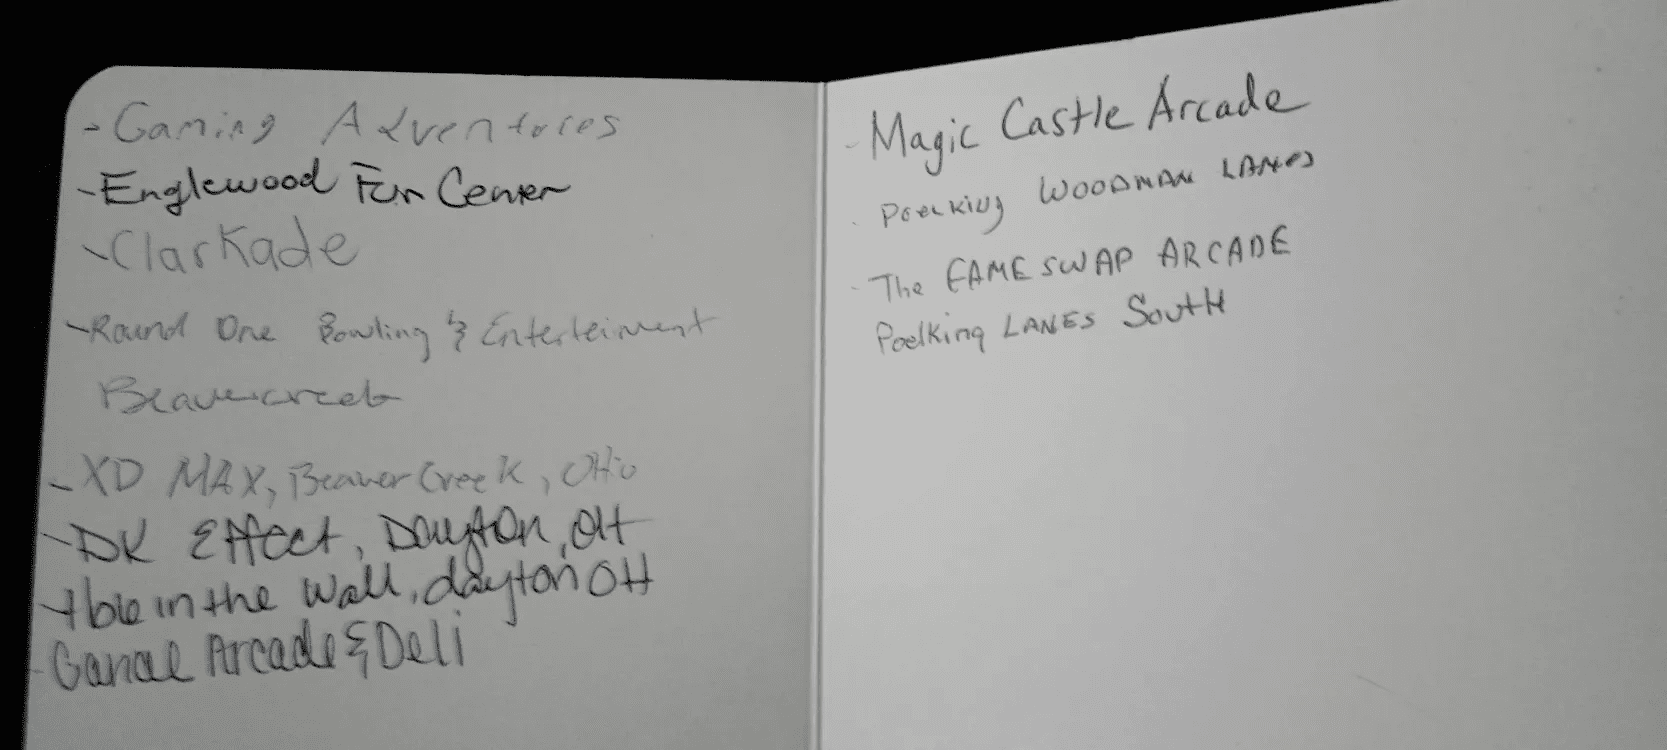 - Gaming Adventures
- Englewood Fun Center
- Clarkade
- Round One Bowling & Enterteinment
Beavercreek
- XD MAX, BeaverCreek, OHio
- DK Effect, Dayton, OH
- Hole in the Wall, dayton OH
- Canal Arcade & Deli
- Magic Castle Arcade
- Poelking WOODMAN LANES
- The GAME SWAP ARCADE
Poelking LANES South